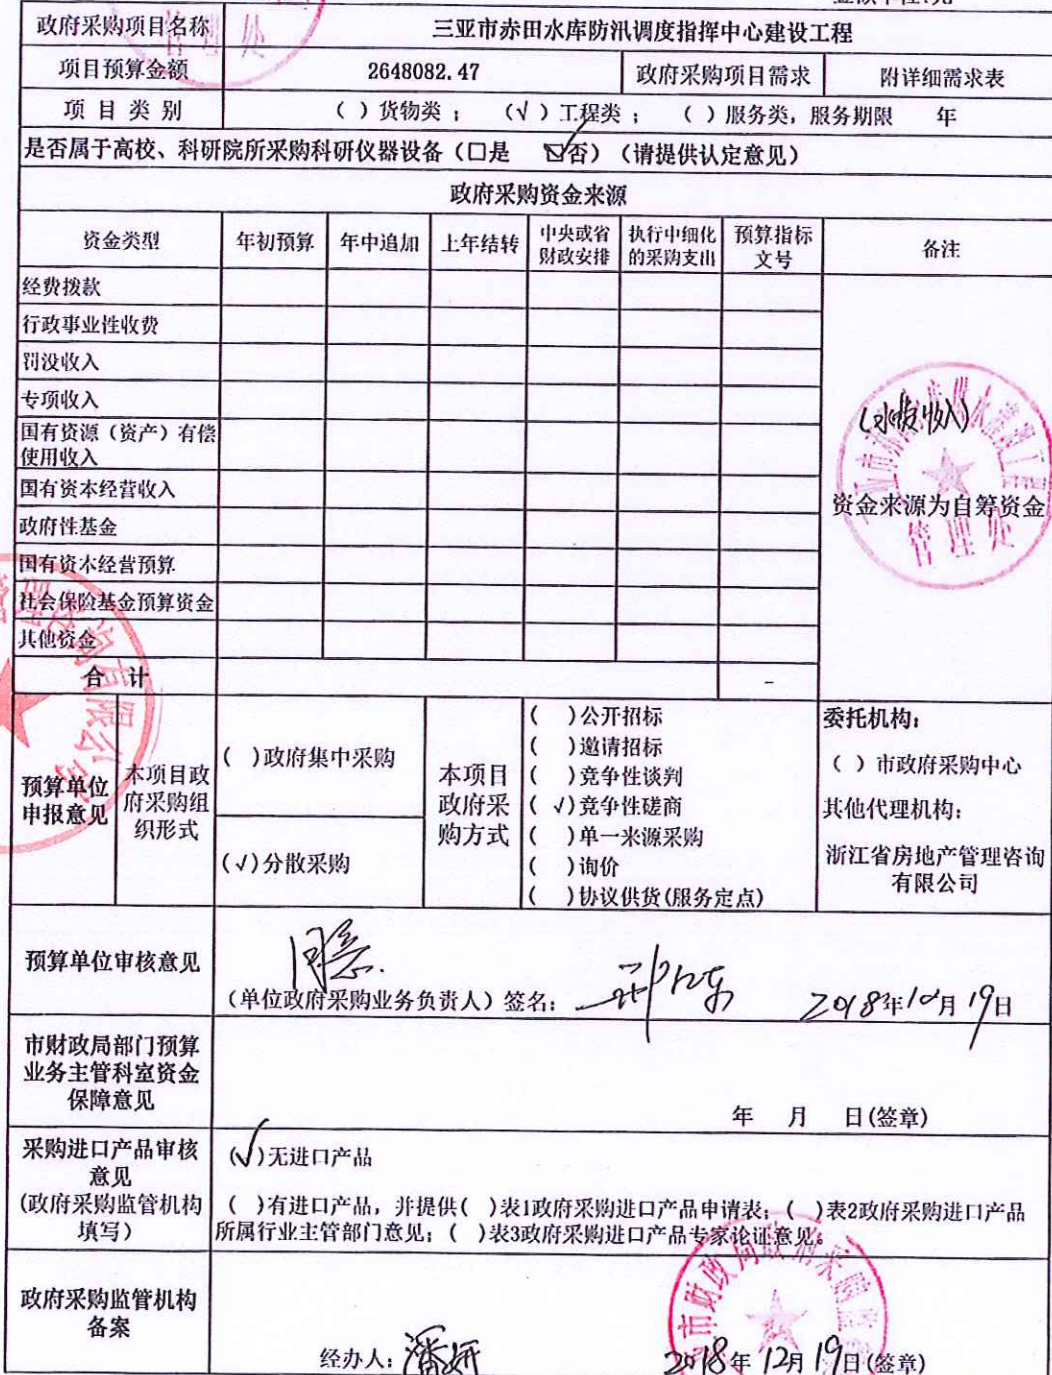 政府采购项目名称 三亚市赤田水库防汛调度指挥中心建设工程
项目预算金额 2648082.47 政府采购项目需求 附详细需求表
项目类别 ( )货物类; (√)工程类; ( )服务类,服务期限 年
是否属于高校、科研院所采购科研仪器设备(□是 ☑否)(请提供认定意见)
政府采购资金来源
资金类型 年初预算 年中追加 上年结转 中央或省财政安排 执行中细化的采购支出 预算指标文号 备注
经费拨款
行政事业性收费
罚没收入
专项收入
国有资源(资产)有偿
使用收入
国有资本经营收入
政府性基金
国有资本经营预算
社会保险基金预算资金
其他资金
(水费收入)
资金来源为自筹资金
管理处
合 计 -
预算单位
申报意见
本项目政
府采购组
织形式
( )政府集中采购
(√)分散采购
本项目
政府采
购方式
( )公开招标
( )邀请招标
( )竞争性谈判
(√)竞争性磋商
( )单一来源采购
( )询价
( )协议供货(服务定点)
委托机构:
( )市政府采购中心
其他代理机构:
浙江省房地产管理咨询
有限公司
预算单位审核意见
同意.
(单位政府采购业务负责人)签名: 2018年12月19日
市财政局部门预算
业务主管科室资金
保障意见
年 月 日(签章)
采购进口产品审核
意见
(政府采购监管机构
填写)
(√)无进口产品
( )有进口产品,并提供( )表1政府采购进口产品申请表;( )表2政府采购进口产品
所属行业主管部门意见;( )表3政府采购进口产品专家论证意见。
政府采购监管机构
备案
经办人:潘妍 2018年12月19日(签章)